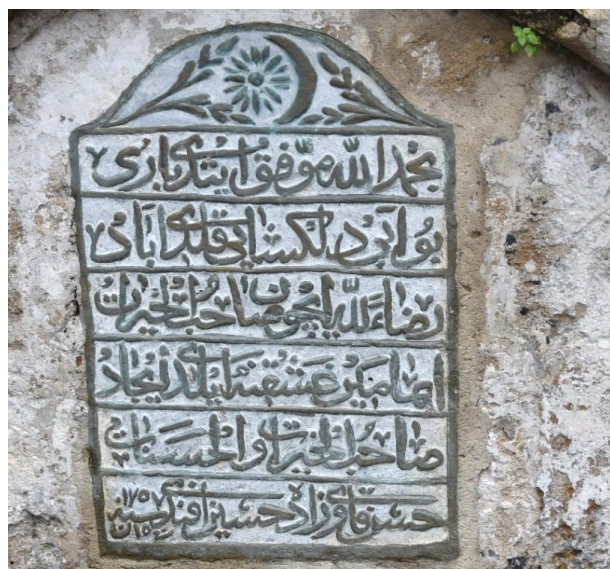 بحمد الله موفق ایتدی باری
بو آب دلکشایی قلدی اباد
رضاء لله ایچون صاحب الخیرات
امامین عشقنه ایلدی ایجاد
صاحب الخیرات والحسنات
حسن زاده حسین افندی سنه